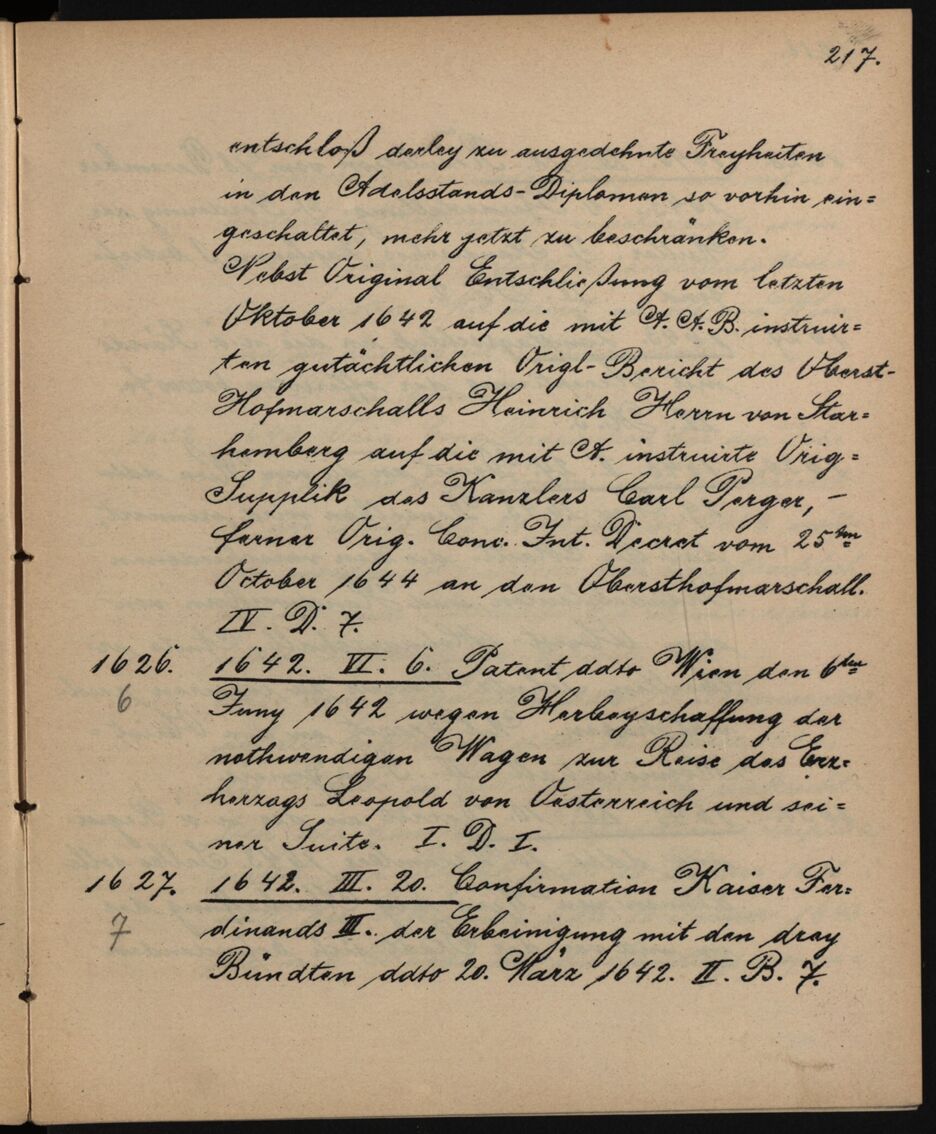 217.
entschloß derley zu ausgedehnte Freyheiten
in den Adelsstands-Diplomen so vorhin ein=
geschaltet, mehr jetzt zu beschränken.
Nebst Original Entschließung vom letzten
Oktober 1642 auf die mit A. A. B. instruir=
ten gutächtlichen Origl-Bericht des Oberst-
Hofmarschalls Heinrich Herrn von Star=
hemberg auf die mit A. instruirte Orig=
Supplik des Kanzlers Carl Perger, –
ferner Orig. Conc. Int. Decret vom 25ten
October 1644 an den Obersthofmarschall.
IV. D. 7.
1626. 1642. VI. 6. Patent ddto Wien den 6ten
6 Juny 1642 wegen Herbeyschaffung der
nothwendigen Wagen zur Reise des Erz=
herzogs Leopold von Oesterreich und sei=
ner Suite. I. D. I.
1627. 1642. III. 20. Confirmation Kaiser Fer=
7 dinands III. der Erbeinigung mit den drey
Bündten ddto 20. März 1642. II. B. 7.